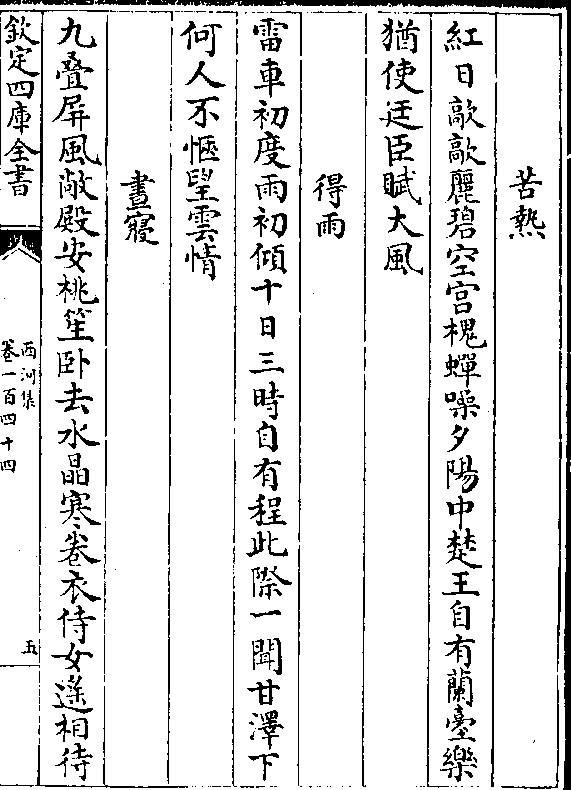 苦熱
紅日歊歊麗碧空宫槐蟬噪夕陽中楚王自有蘭臺樂
猶使廷臣賦大風
得雨
雷車初度雨初傾十日三時自有程此際一聞甘澤下
何人不愜望雲情
晝寢
九疊屏風敞殿安桃笙卧去水晶寒卷衣侍女遙相待
欽定四庫全書
西河集
卷一百四十四
五